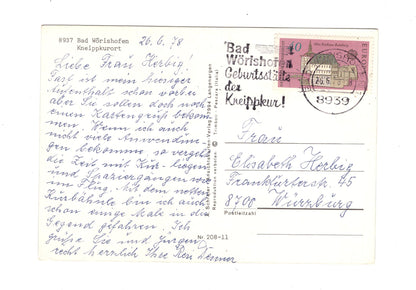 8937 Bad Wörishofen
Kneippkurort
26.6.78
Liebe Frau Herbig!
Fast ist mein hiesiger
Aufenthalt schon vorbei
aber Sie sollen doch noch
einen Kartengruß bekom-
men. Wenn ich auch
nicht viele Anwendun-
gen bekomme, so vergeht
die Zeit mit Kur-
und Spaziergängen wie
im Flug. Mit dem netten
Kurbähnle bin ich auch
schon einige Male in der
Gegend gefahren. Ich
grüße Sie und Jürgen
recht herzlich Ihre
Bad
Wörishofen
Geburtsstätte
der
Kneippkur!
40
EUROPA
8939
Frau
Elisabeth Herbig
Frankfurterstr. 45
8700 Würzburg
Postleitzahl
Nr. 208-11